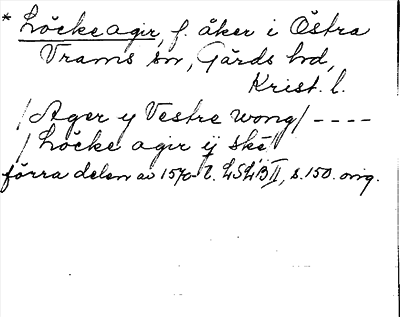 * Löckeagir, f. åker i Östra
Vrams sn, Gärds hd,
Krist. l.
/Ager y Vestre wong/ ----
/Löcke agir ÿ ske
förra delen av 1570-t. LSLB II, s. 150. orig.